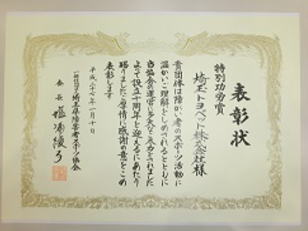 表彰状
特別功労賞
埼玉トヨペット株式会社様
貴団体は障がい者のスポーツ活動に
温かいご理解をしめされるとともに
当協会の運営に多大なご尽力をされました
よって設立十周年を迎えるにあたり
賜りましたご厚情に感謝の意をこめ
表彰します
平成二十七年一月十日
一般社団法人埼玉県障害者スポーツ協会
会長